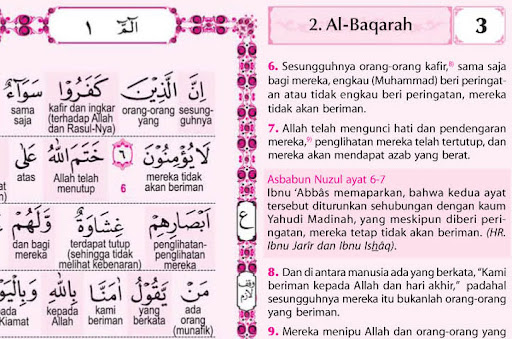 الٓمّٓ ١
2. Al-Baqarah
3
اِنَّ الَّذِيْنَ كَفَرُوْا سَوَاۤءٌ
sesung-guhnya orang-orang yang kafir dan ingkar (terhadap Allah dan Rasul-Nya) sama saja
لَا يُؤْمِنُوْنَ ٦ خَتَمَ اللّٰهُ عَلٰى
mereka tidak akan beriman 6 Allah telah menutup atas
اَبْصَارِهِمْ غِشَاوَةٌ وَّلَهُمْ
penglihatan-penglihatan mereka terdapat tutup (sehingga tidak melihat kebenaran) dan bagi mereka
ع
مَنْ يَّقُوْلُ اٰمَنَّا بِاللّٰهِ وَبِالْيَوْمِ
ada orang (munafik) yang berkata kami beriman kepada Allah pada Kiamat
6. Sesungguhnya orang-orang kafir,⁸⁾ sama saja
bagi mereka, engkau (Muhammad) beri peringat-
an atau tidak engkau beri peringatan, mereka
tidak akan beriman.
7. Allah telah mengunci hati dan pendengaran
mereka,⁹⁾ penglihatan mereka telah tertutup, dan
mereka akan mendapat azab yang berat.
Asbabun Nuzul ayat 6-7
Ibnu ‘Abbâs memaparkan, bahwa kedua ayat
tersebut diturunkan sehubungan dengan kaum
Yahudi Madinah, yang meskipun diberi peri-
ngatan, mereka tetap tidak akan beriman. (HR.
Ibnu Jarîr dan Ibnu Ishâq).
8. Dan di antara manusia ada yang berkata, “Kami
beriman kepada Allah dan hari akhir,” padahal
sesungguhnya mereka itu bukanlah orang-orang
yang beriman.
9. Mereka menipu Allah dan orang-orang yang